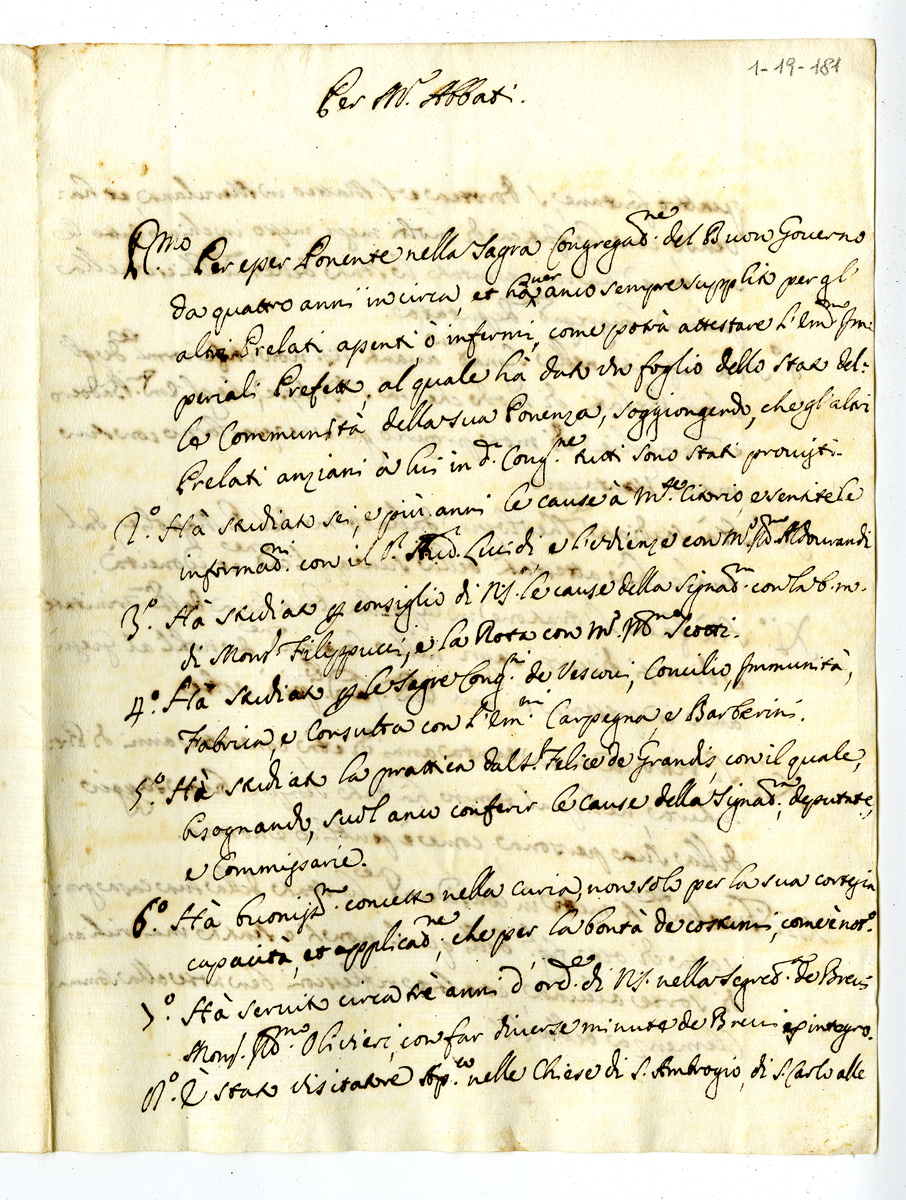 1-19-181
Per M.r Abbati.
P.mo Per esser Ponente nella Sagra Congregaz.ne del Buon Governo
da quattro anni in circa, et haver anco sempre supplito per gl
altri Prelati assenti, ò infermi, come potrà attestare l'Em.mo Im=
periali Prefetto, al quale hà dato un foglio dello stato del=
le Communità della sua Ponenza, soggiongendo, che gl'altri
Prelati anziani à lui in d.a Cong.ne tutti sono stati provisti.
2.o Hà studiato sei, e più anni le cause à M.te Citorio, e sentitele
informaz.ni con il S.r Lucidi, e l'udienze con M.r Aldourandi
3.o Hà studiato p consiglio di NS. le cause della Signat.ra con la b.m.
di Mons.r Filippucci, e la Rota con M.r Scotti.
4.o Hà studiato p le Sagre Cong.ni de Vescovi, Concilio, Immunità,
Fabrica, e Consulta con l'Em.mi Carpegna, e Barberini.
5.o Hà studiato la prattica dal S.r Felice de Grandis, con il quale,
bisognando, suol anco conferir le cause della Signat.ra, deputate,
e Commissarie.
6.o Hà buoniss.mo concetto nella curia, non solo per la sua cortesia
capacità, et applicaz.ne, che per la bontà de costumi, come è not.o
7.o Hà servito circa trè anni d'ord.e di NS. nella Segret.a de Brevi
Mons. Ill.mo Olivieri, con far diverse minute de Brevi ex integro.
8.o È stato visitatore Ap.co nelle Chiese di S. Ambrogio, di S. Carlo alle